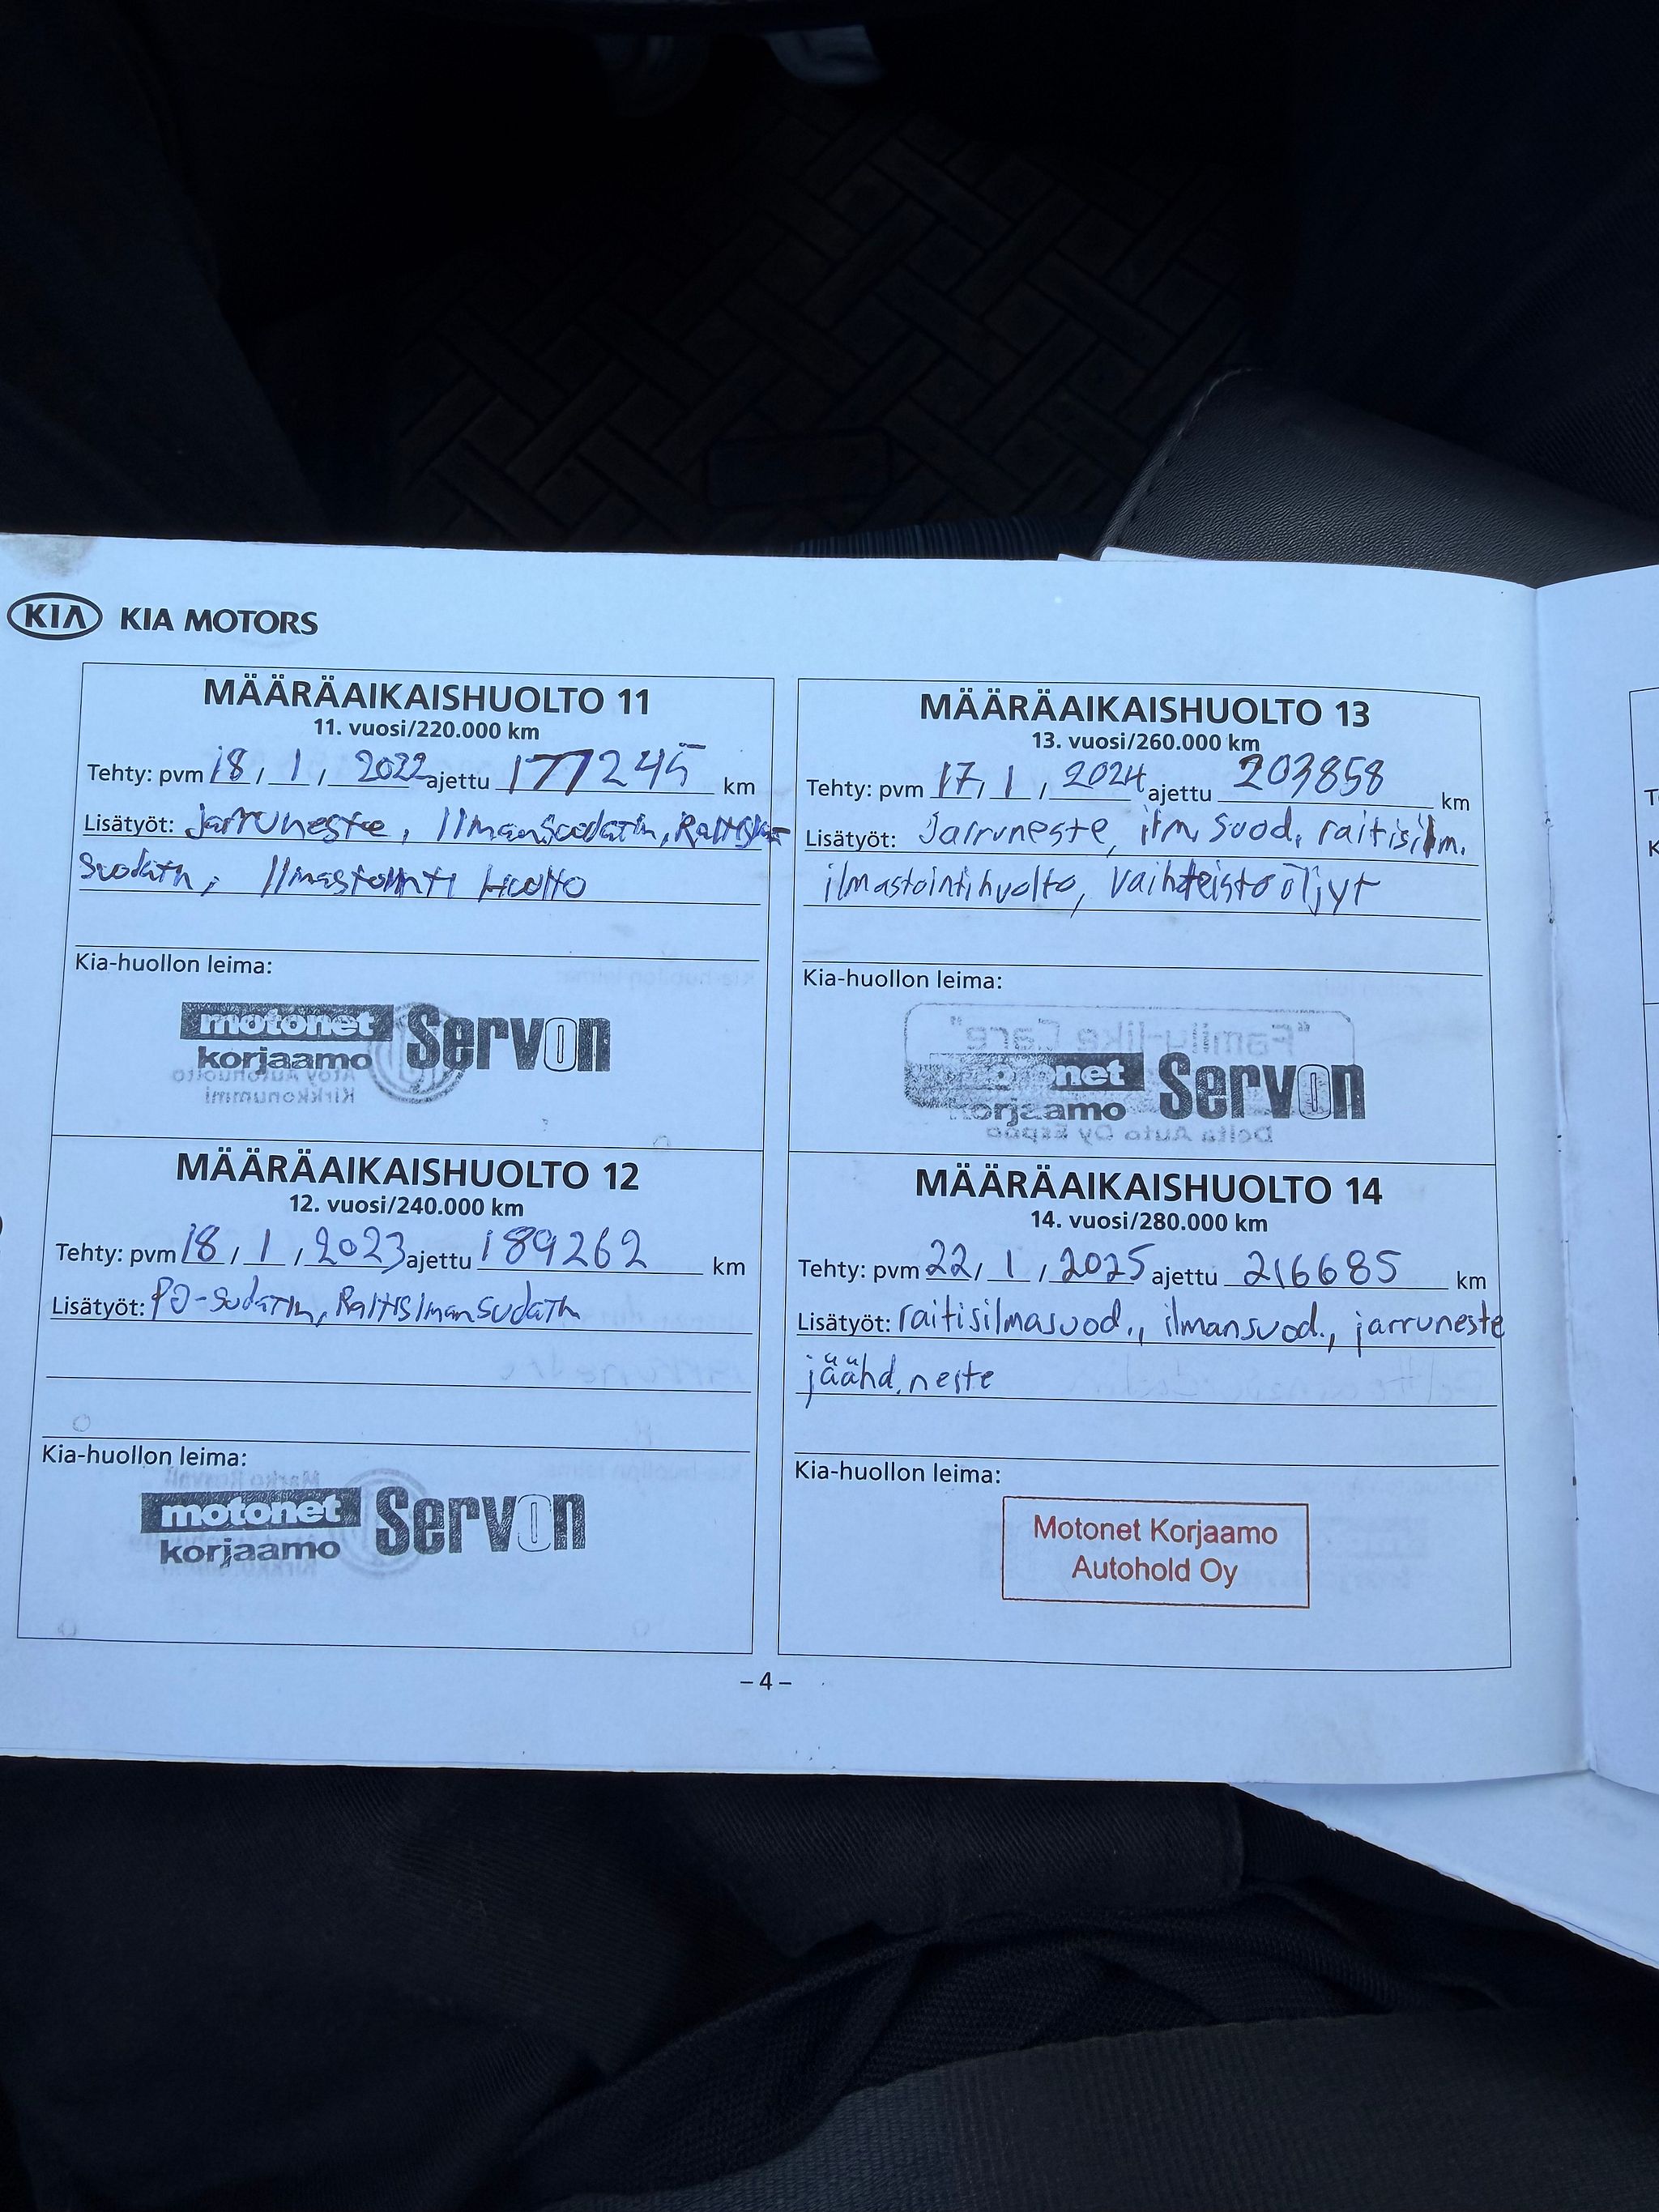 KIA KIA MOTORS
MÄÄRÄAIKAISHUOLTO 11
11. vuosi/220.000 km
Tehty: pvm 18 / 1 / 2022 ajettu 177245 km
Lisätyöt: Jarruneste, Ilmansuodatin,
Suodatin, Ilmastointi Huolto
Kia-huollon leima:
motonet
korjaamo Servon
Atoy Autohuolto
Kirkkonummi
MÄÄRÄAIKAISHUOLTO 12
12. vuosi/240.000 km
Tehty: pvm 18 / 1 / 2023 ajettu 189262 km
Lisätyöt: PO-Sudatin, Raitisilmansudatin
Kia-huollon leima:
motonet
korjaamo Servon
MÄÄRÄAIKAISHUOLTO 13
13. vuosi/260.000 km
Tehty: pvm 17 / 1 / 2024 ajettu 203858 km
Lisätyöt: Jarruneste, ilm. suod, raitisilm.
ilmastointihuolto, vaihteistoöljyt
Kia-huollon leima:
"Family-like Care"
motonet
korjaamo Servon
Delta Auto Oy Espoo
MÄÄRÄAIKAISHUOLTO 14
14. vuosi/280.000 km
Tehty: pvm 22 / 1 / 2025 ajettu 216685 km
Lisätyöt: raitisilmasuod., ilmansuod., jarruneste
jäähd. neste
Kia-huollon leima:
Motonet Korjaamo
Autohold Oy
– 4 –